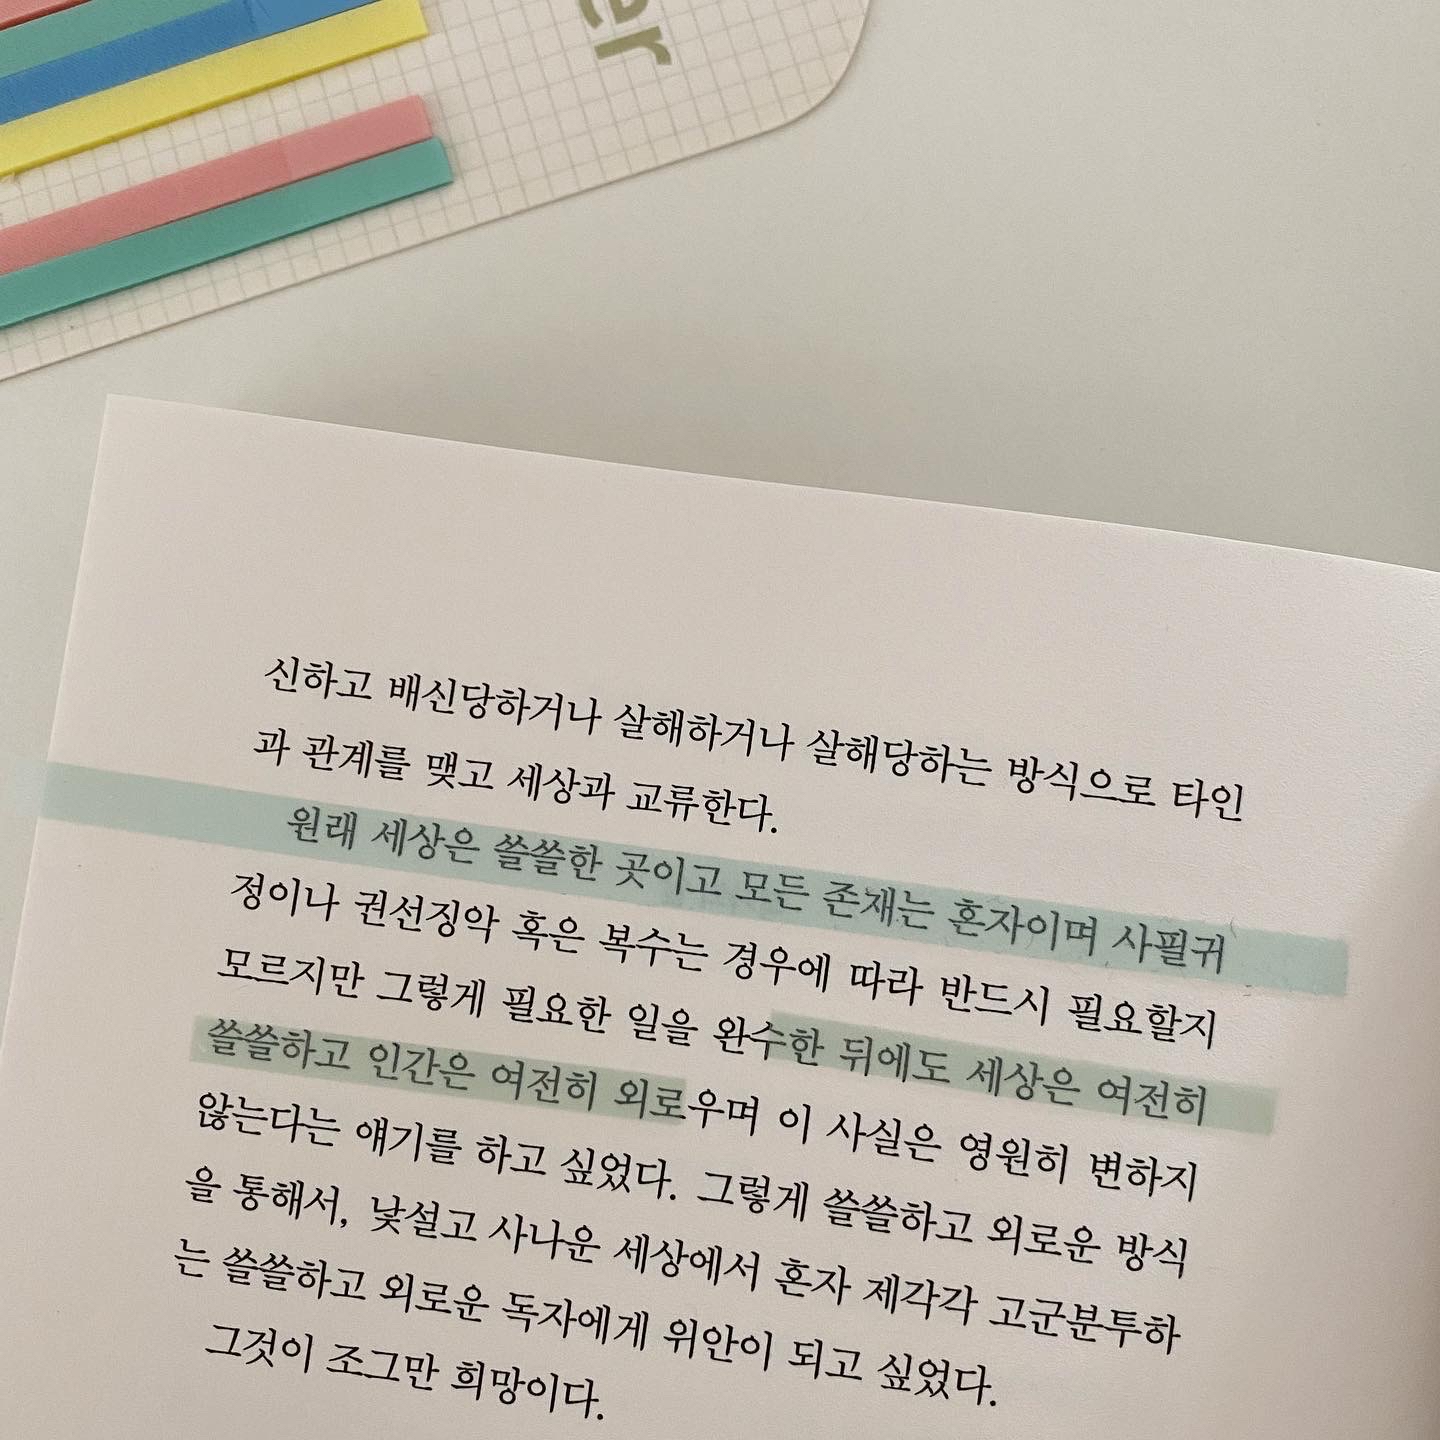 er
신하고 배신당하거나 살해하거나 살해당하는 방식으로 타인
과 관계를 맺고 세상과 교류한다.
원래 세상은 쓸쓸한 곳이고 모든 존재는 혼자이며 사필귀
정이나 권선징악 혹은 복수는 경우에 따라 반드시 필요할지
모르지만 그렇게 필요한 일을 완수한 뒤에도 세상은 여전히
쓸쓸하고 인간은 여전히 외로우며 이 사실은 영원히 변하지
않는다는 얘기를 하고 싶었다. 그렇게 쓸쓸하고 외로운 방식
을 통해서, 낯설고 사나운 세상에서 혼자 제각각 고군분투하
는 쓸쓸하고 외로운 독자에게 위안이 되고 싶었다.
그것이 조그만 희망이다.